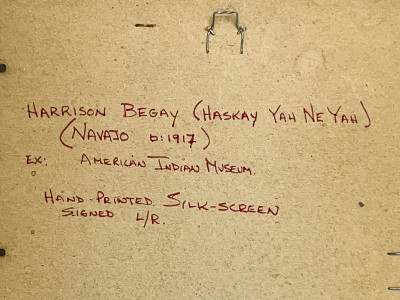 HARRISON BEGAY (HASKAY YAH NE YAH)
(NAVAJO b:1917)
EX: AMERICAN INDIAN MUSEUM.
HAND-PRINTED SILK-SCREEN
SIGNED L/R.